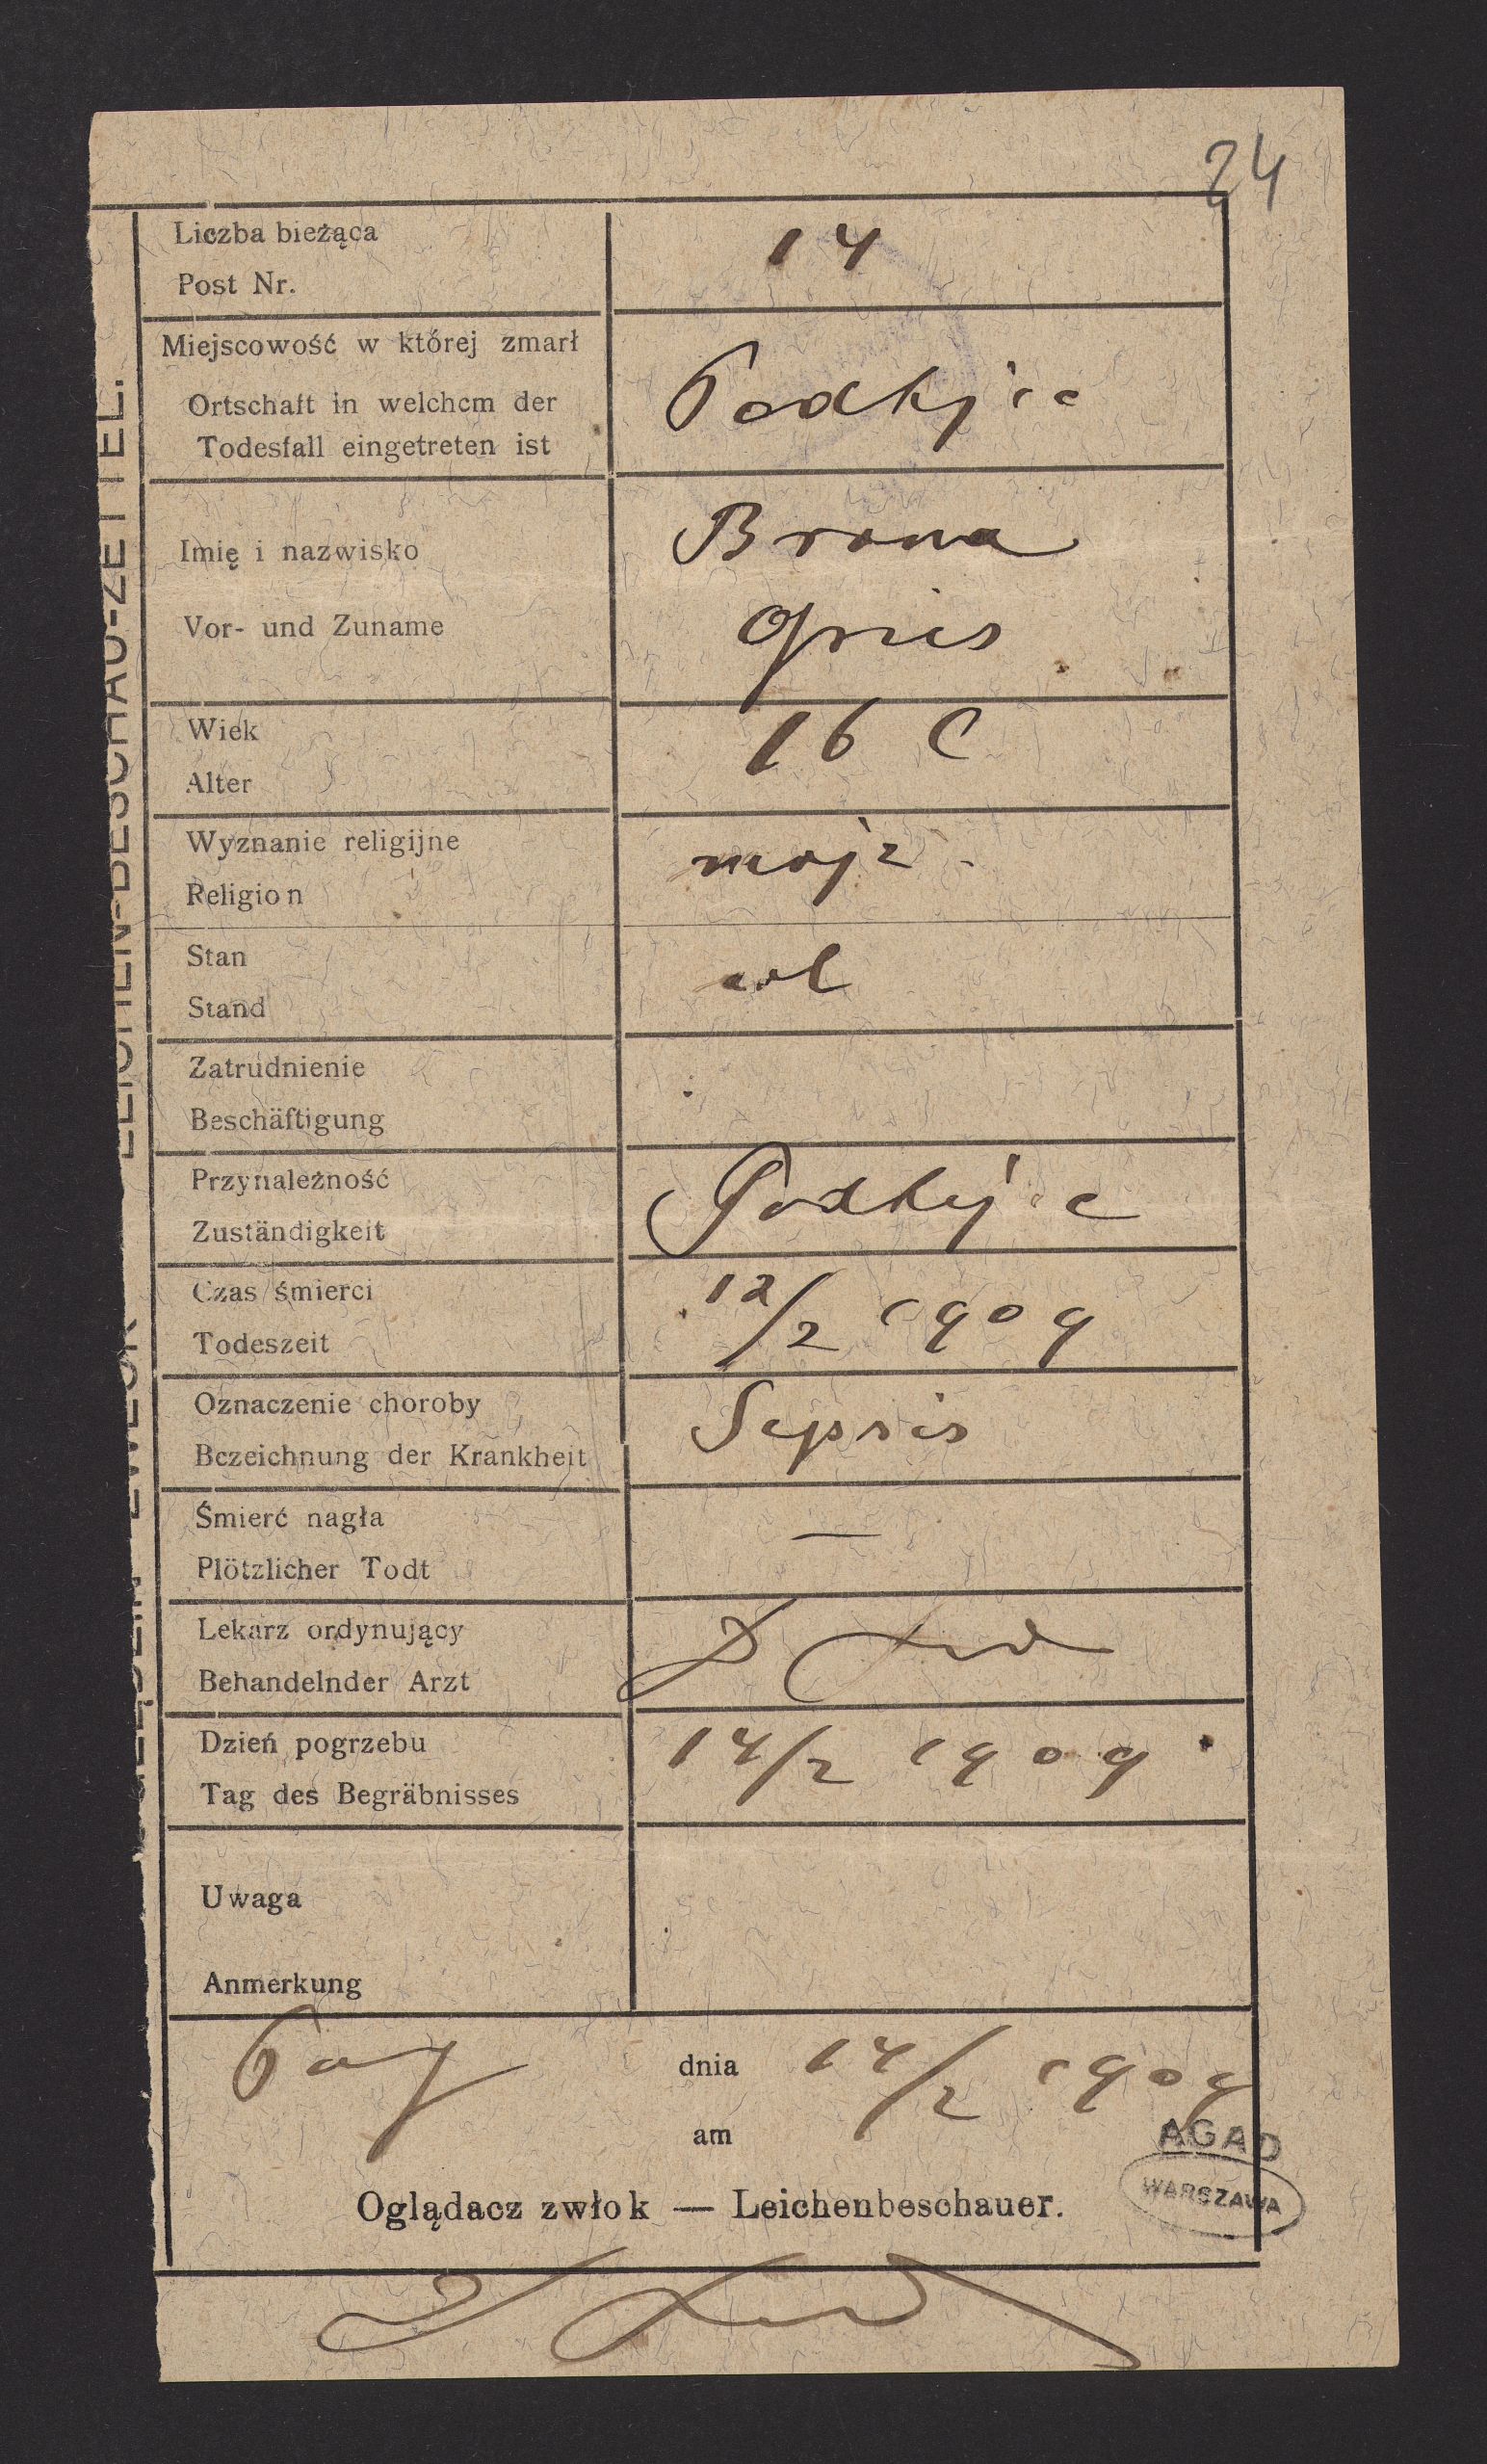 24
Liczba bieżąca
Post Nr.
14
Miejscowość w której zmarł
Ortschaft in welchem der
Todesfall eingetreten ist
Imię i nazwisko
Vor- und Zuname
Brona
Gries
Wiek
Alter
16
Wyznanie religijne
Religion
mojż.
Stan
Stand
wol
Zatrudnienie
Beschäftigung
Przynależność
Zuständigkeit
Czas śmierci
Todeszeit
12/2 1909
Oznaczenie choroby
Bezeichnung der Krankheit
Sepsis
Śmierć nagła
Plötzlicher Todt
—
Lekarz ordynujący
Behandelnder Arzt
Dzień pogrzebu
Tag des Begräbnisses
14/2 1909
Uwaga
Anmerkung
dnia 14/2 1909
am
AGAD
WARSZAWA
Oglądacz zwłok — Leichenbeschauer.
LEICHEN-BESCHAU-ZETTEL.